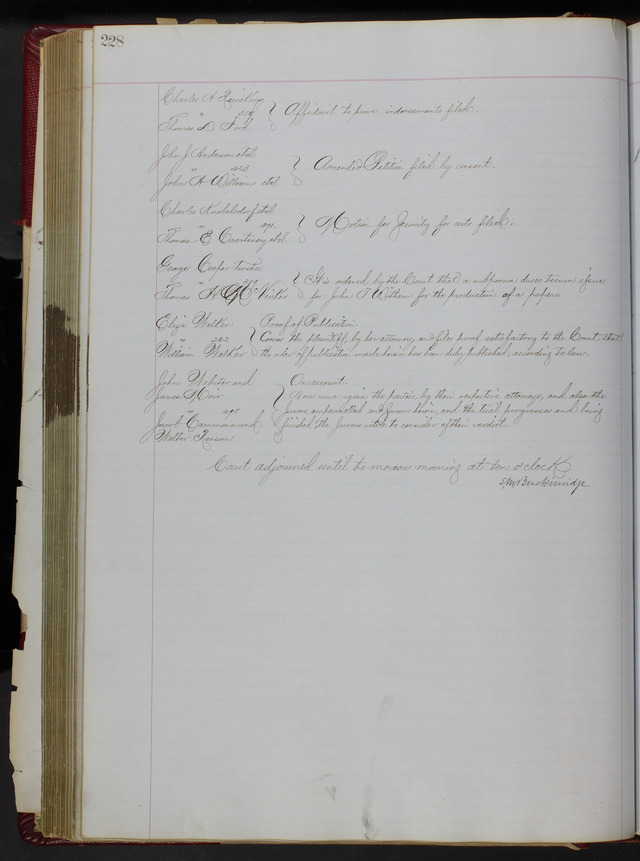 228
Charles A
Thomas D. Affidavit to prove indorsements filed.
John J. Anderson et al
John H Williams et al Amended Petition filed by consent.
Charles et al
Thomas E Courtenay et al Motion for Security for costs filed.
George Cooper trustee
Thomas It is ordered by the Court that a subpoena duces tecum issue
for John T Witham for the production of a paper.
Eliza Walker Proof of Publication.
202 Comes the plaintiff, by her attorney, and files proof satisfactory to the Court that
William Walker the order of publication made herein has been duly published, according to law.
John Webster and On account.
James Moir Now come again the parties, by their respective attorneys, and also the
Jurors empannelled and sworn herein, and the trial progresses and being
Jacob Cammann and finished the Jurors retire to consider of their verdict.
Walter
Court adjourned until to morrow morning at ten o'clock
S, M, Breckinridge